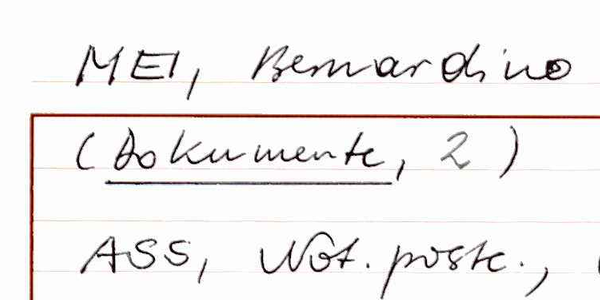 MEI, Bernardino
(Dokumente, 2)
ASS, Not. poste.,